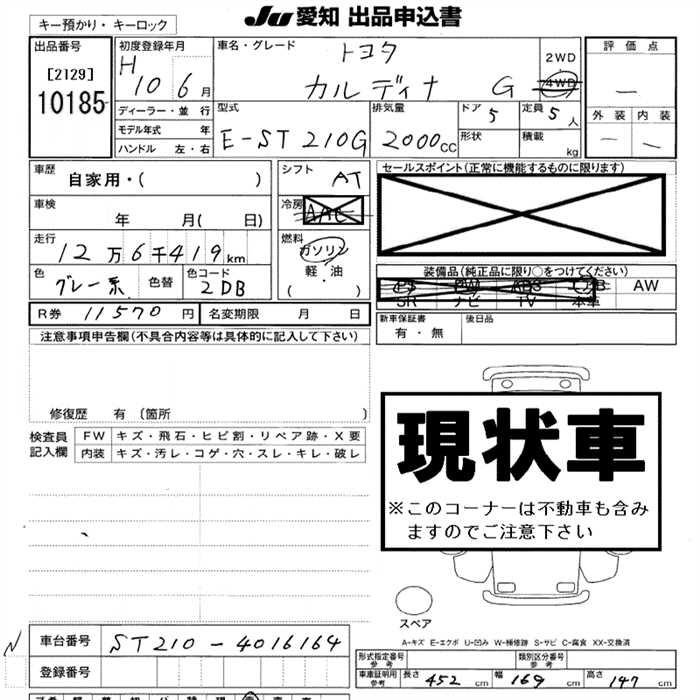 JU 愛知 出品申込書
キー預かり・キーロック
出品番号
[2129]
10185
初度登録年月
H 10 6 月
ディーラー・並行
モデル年式 年
ハンドル 左・右
車名・グレード
トヨタ
カルディナ G
2WD
4WD
型式
E-ST210G
排気量
2000 CC
ドア 5
形状
定員 5 人
積載 kg
評価点
—
外装 内装
— —
車歴
自家用・( )
車検
年 月( 日)
走行
12万6千419km
色
グレー系
色替
色コード
2DB
シフト
AT
冷房
AAC
燃料
ガソリン
軽・油
( ・ )
セールスポイント(正常に機能するものに限ります)
装備品(純正品に限り○をつけてください)
PS PW ABS エアB AW
SR ナビ TV 本革
R券 11570 円 名変期限 月 日
新車保証書
有・無
後日品
注意事項申告欄(不具合内容等は具体的に記入して下さい)
修復歴 有 〔箇所 〕
検査員
記入欄
FW キズ・飛石・ヒビ割・リペア跡・X要
内装 キズ・汚レ・コゲ・穴・スレ・キレ・破レ
現状車
※このコーナーは不動車も含み
ますのでご注意下さい
スペア
A-キズ E-エクボ U-凹み W-補修跡 S-サビ C-腐食 XX-交換済
N
車台番号 ST210-4016164
登録番号
形式指定番号
参考
類別区分番号
参考
車庫証明用
参考
長さ 452 cm 幅 169 cm 高さ 147 cm